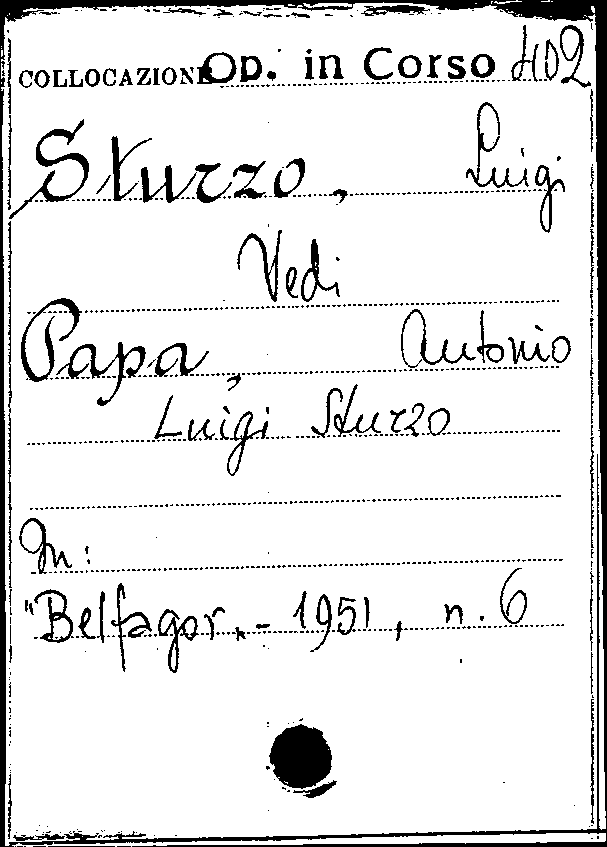 COLLOCAZIONE Op. in Corso 402
Sturzo, Luigi
Vedi
Papa, Antonio
Luigi Sturzo
In:
"Belfagor". - 1951, n. 6